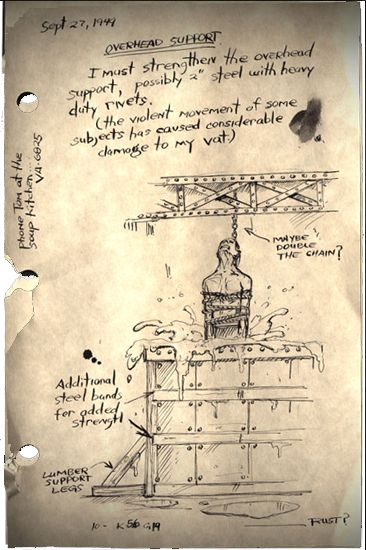 Sept 27, 1949
OVERHEAD SUPPORT
I must strengthen the overhead
support, possibly 2" steel with heavy
duty rivets.
(the violent movement of some
subjects has caused considerable
damage to my vat.)
phone Tom at the
soup kitchen...
VA-6825
MAYBE
DOUBLE
THE CHAIN?
Additional
steel bands
for added
strength
LUMBER
SUPPORT
LEGS
RUST?